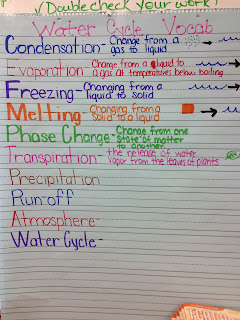 √ Double check your work!
Water Cycle Vocab
Condensation- Change from a
gas to liquid
Evaporation Change from a liquid to
a gas at temperatures below boiling
Freezing- Changing from a
liquid to solid
Melting- Changing from a
solid to a liquid
Phase Change- Change from one
state of matter
to another.
Transpiration- The release of water
vapor from the leaves of plants
Precipitation
Run-off
Atmosphere-
Water Cycle-